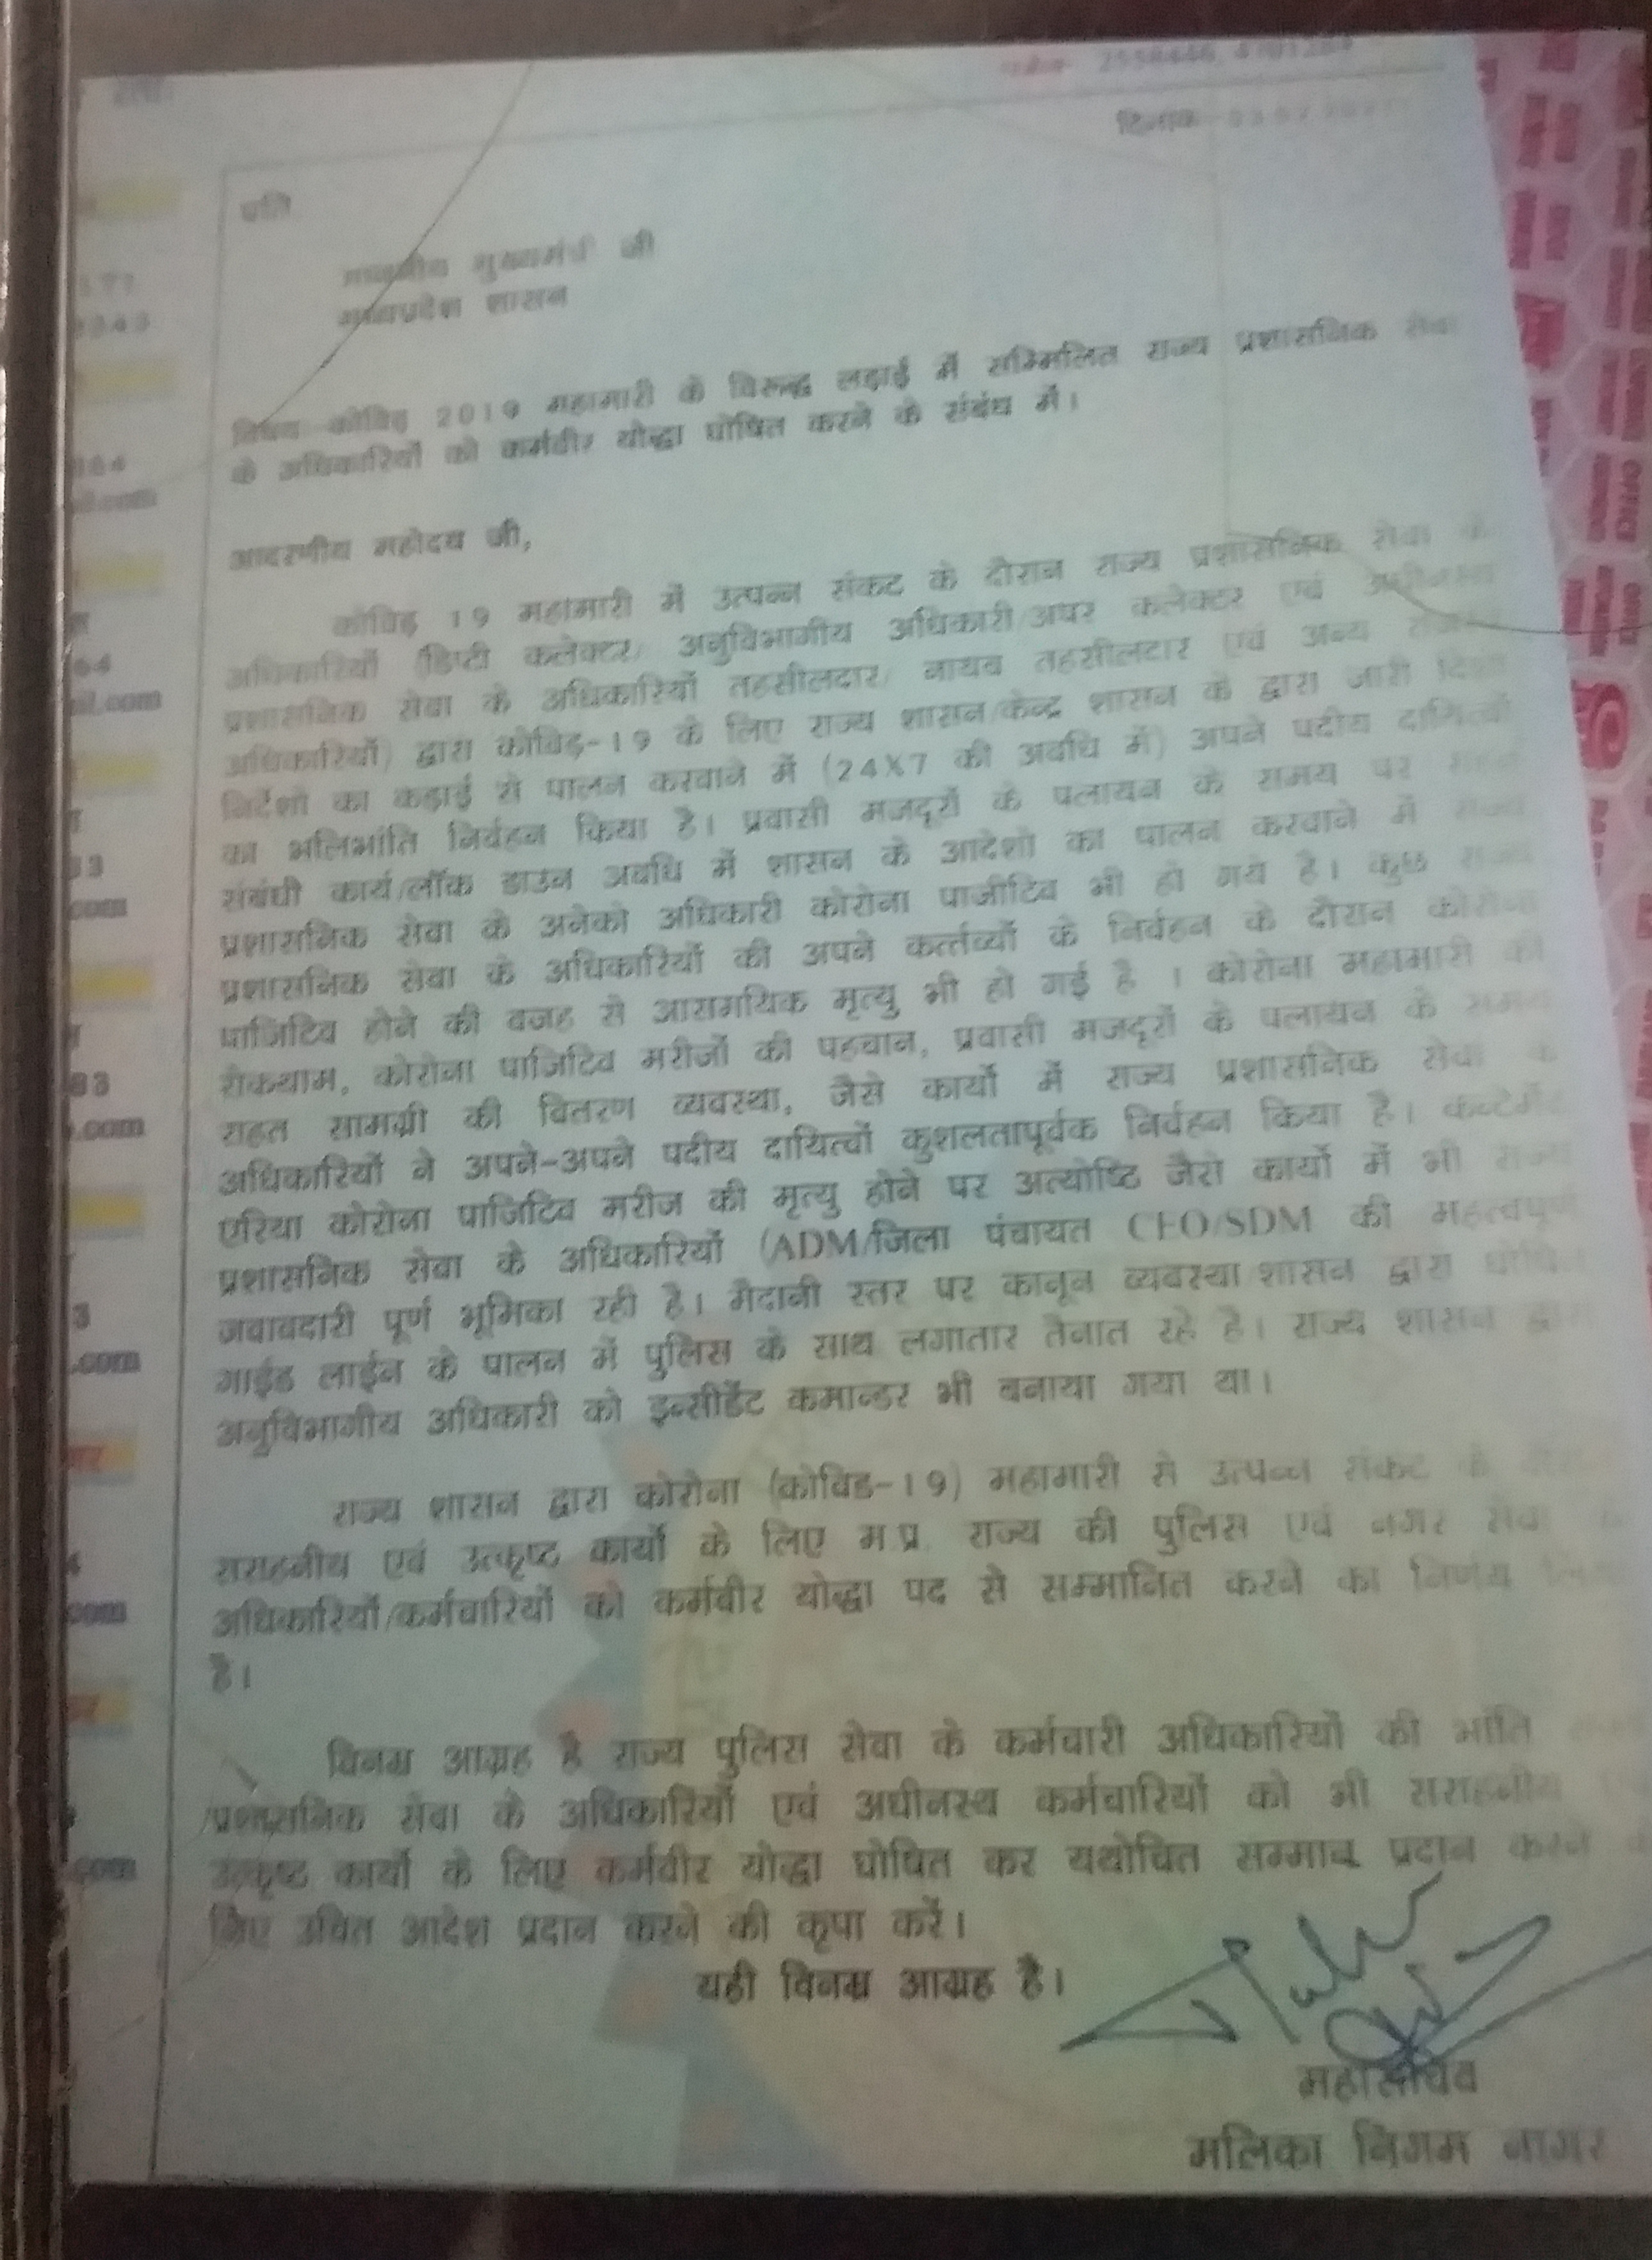 2558446,
दिनांक
प्रति
माननीय मुख्यमंत्री जी
मध्यप्रदेश शासन
विषय-कोविड़ 2019 महामारी के विरूद्ध लड़ाई में सम्मिलित राज्य प्रशासनिक सेवा
के अधिकारियों को कर्मवीर योद्धा घोषित करने के संबंध में।
आदरणीय महोदय जी,
कोविड़ 19 महामारी में उत्पन्न संकट के दौरान राज्य प्रशासनिक सेवा के
अधिकारियों (डिप्टी कलेक्टर/ अनुविभागीय अधिकारी/अपर कलेक्टर एवं अधीनस्थ
प्रशासनिक सेवा के अधिकारियों तहसीलदार/ नायब तहसीलदार एवं अन्य
अधिकारियों) द्वारा कोविड़-19 के लिए राज्य शासन/केन्द्र शासन के द्वारा जारी दिशा
निर्देशो का कड़ाई से पालन करवाने में (24X7 की अवधि में) अपने पदीय दायित्वों
का भलिभांति निर्वहन किया है। प्रवासी मजदूरों के पलायन के समय पर राहत
संबंधी कार्य/लॉक डाउन अवधि में शासन के आदेशो का पालन करवाने में राज्य
प्रशासनिक सेवा के अनेको अधिकारी कोरोना पाजीटिव भी हो गये है। कुछ राज्य
प्रशासनिक सेवा के अधिकारियों की अपने कर्त्तव्यों के निर्वहन के दौरान कोरोना
पाजिटिव होने की वजह से आसमयिक मृत्यु भी हो गई है । कोरोना महामारी की
रोकथाम, कोरोना पाजिटिव मरीजों की पहचान, प्रवासी मजदूरों के पलायन के समय
राहत सामग्री की वितरण व्यवस्था, जैसे कार्यो में राज्य प्रशासनिक सेवा के
अधिकारियों ने अपने-अपने पदीय दायित्वों कुशलतापूर्वक निर्वहन किया है।
एरिया कोरोना पाजिटिव मरीज की मृत्यु होने पर अत्योष्टि जैसे कार्यो में भी राज्य
प्रशासनिक सेवा के अधिकारियों (ADM/जिला पंचायत CEO/SDM की महत्वपूर्ण
जवाबदारी पूर्ण भूमिका रही है। मैदानी स्तर पर कानून व्यवस्था/शासन द्वारा
गाईड लाईन के पालन में पुलिस के साथ लगातार तैनात रहे है। राज्य शासन द्वारा
अनुविभागीय अधिकारी को इन्सीडेंट कमान्डर भी बनाया गया था।
राज्य शासन द्वारा कोरोना (कोविड-19) महामारी से उत्पन्न संकट के
सराहनीय एवं उत्कृष्ट कार्यो के लिए म.प्र. राज्य की पुलिस एवं नगर सेवा
अधिकारियों/कर्मचारियों को कर्मवीर योद्धा पद से सम्मानित करने का निर्णय
है।
विनम्र आग्रह है राज्य पुलिस सेवा के कर्मचारी अधिकारियों की भांति
प्रशासनिक सेवा के अधिकारियों एवं अधीनस्थ कर्मचारियों को भी सराहनीय
उत्कृष्ट कार्यो के लिए कर्मवीर योद्धा घोषित कर यथोचित सम्मान प्रदान करने
लिए उचित आदेश प्रदान करने की कृपा करें।
यही विनम्र आग्रह है।
महासचिव
मलिका निगम नागर